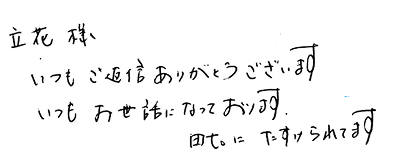 立花様、
いつもご返信ありがとうございます
いつもお世話になっております.
にたすけられてます